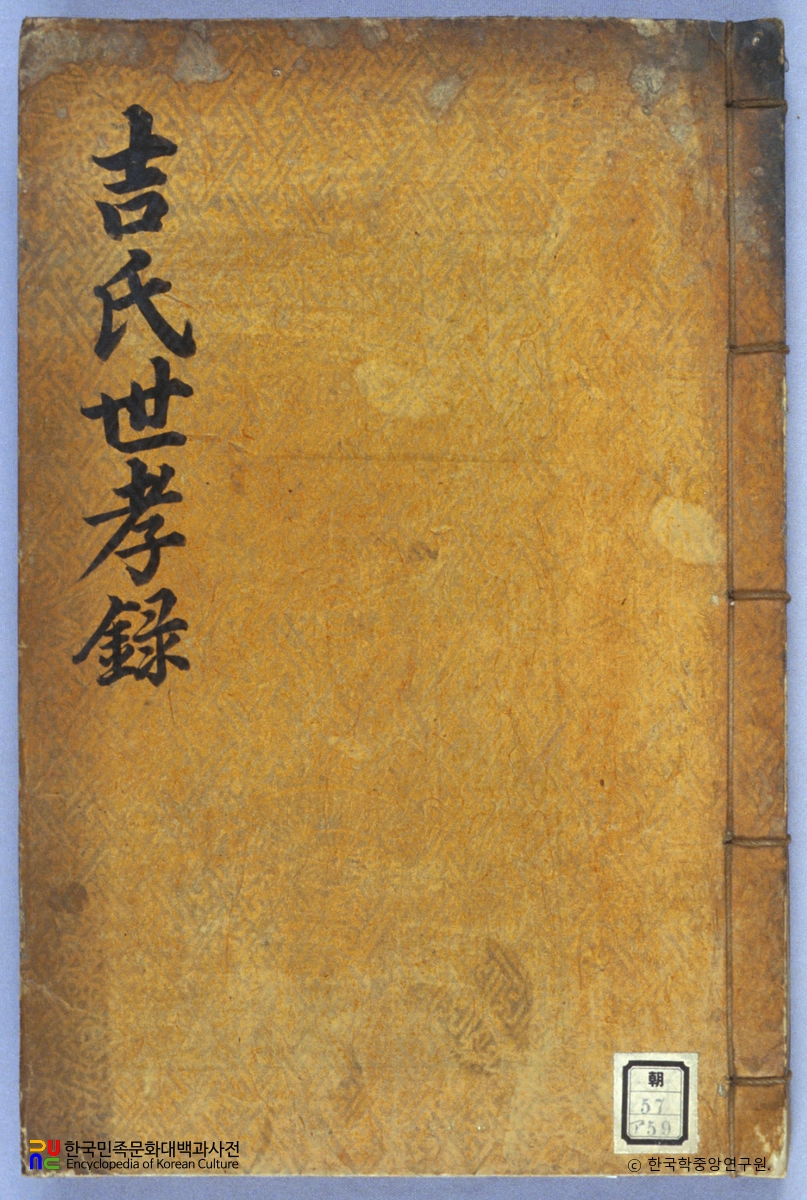 吉氏世孝錄
朝
57
ア59
한국민족문화대백과사전
Encyclopedia of Korean Culture
ⓒ 한국학중앙연구원.